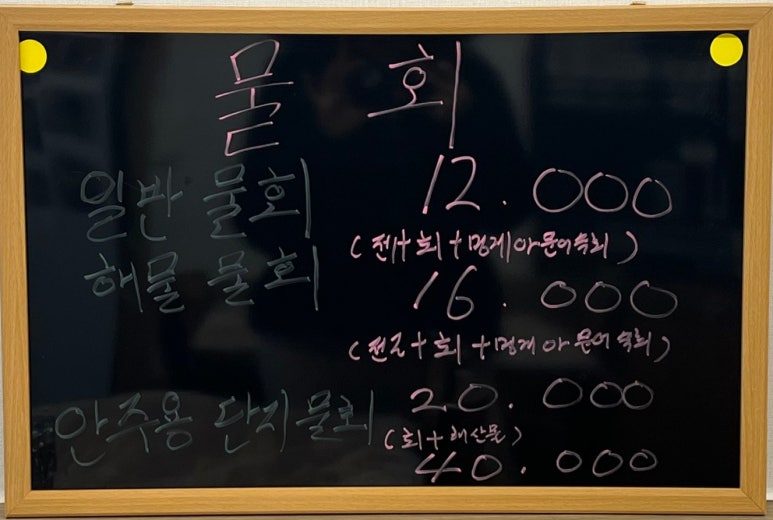 물 회
일반 물회 12.000
( 전+회+멍게 아 문어숙회 )
해물 물회 16.000
( 전그+회+멍게 아 문어 숙회 )
20.000
안주용 단지물회
( 회+해산물 )
40.000